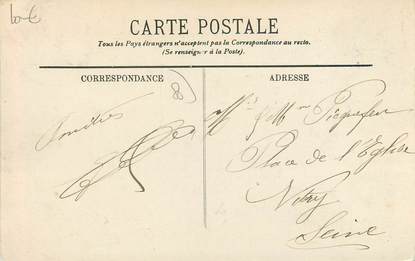 10-€
CARTE POSTALE
Tous les Pays étrangers n'acceptent pas la Correspondance au recto.
(Se renseigner à la Poste).
CORRESPONDANCE
ADRESSE
Place de l'Eglise
Vitry
Seine